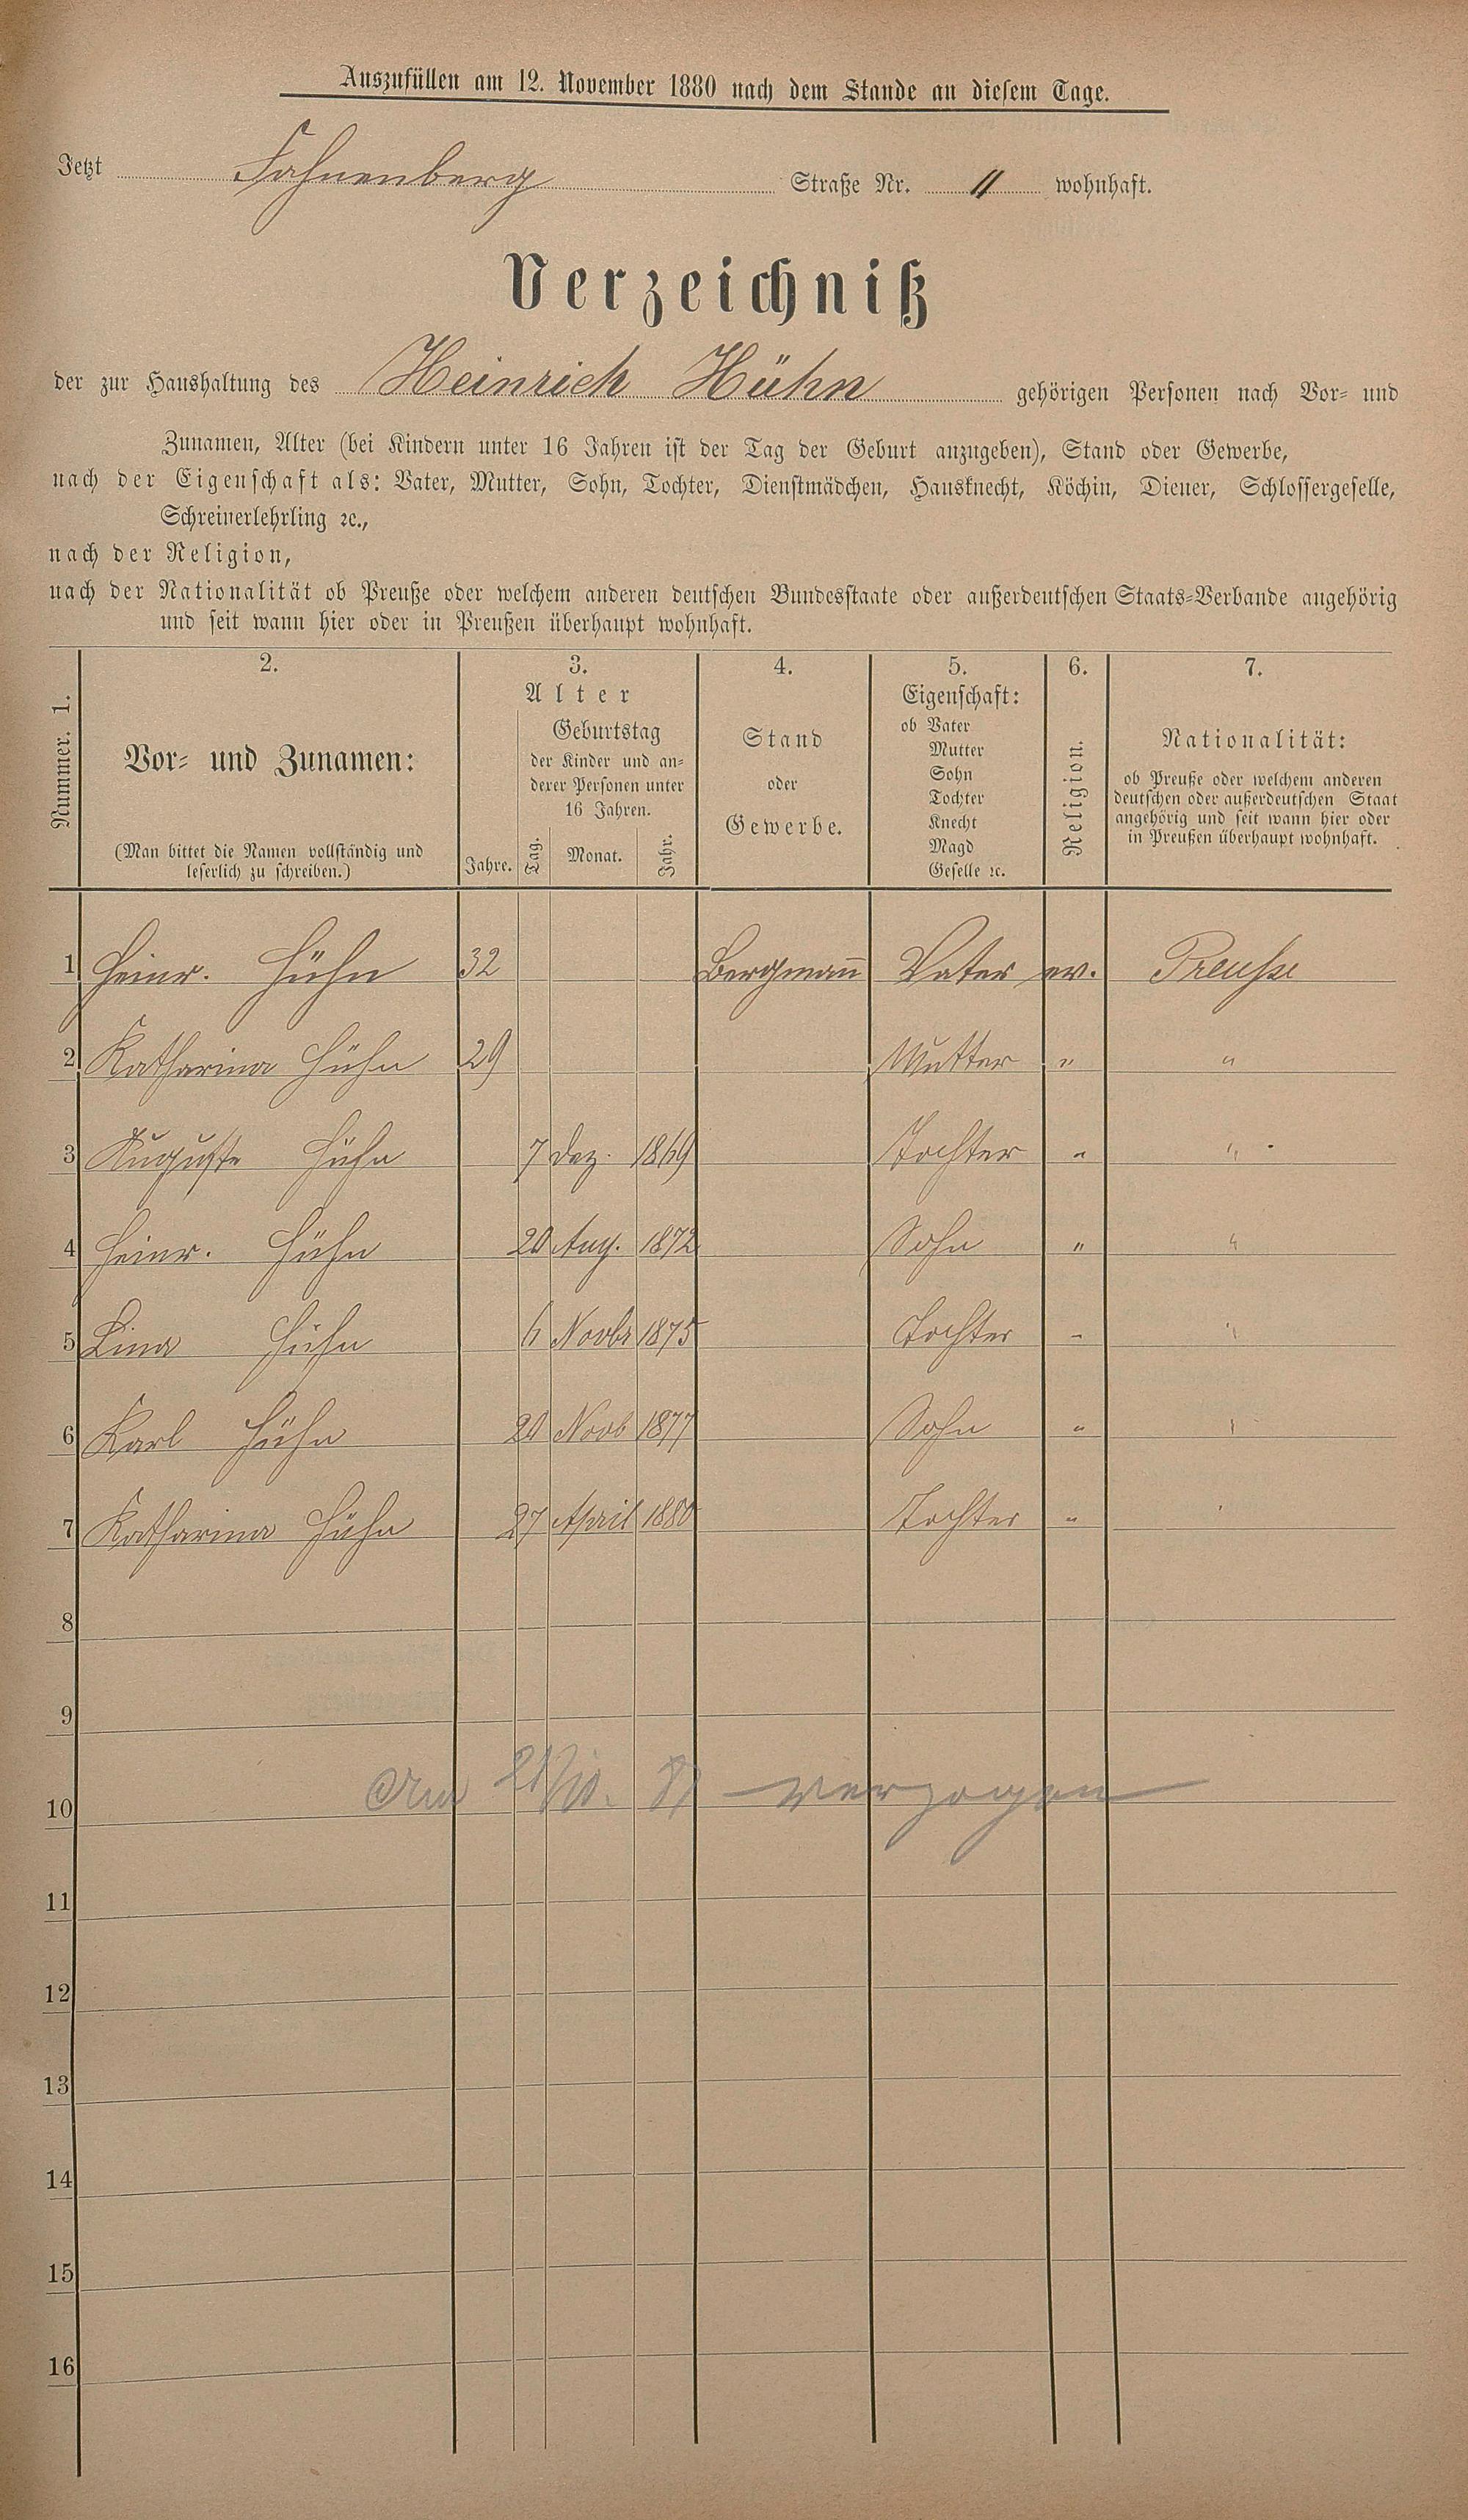 Auszufüllen am 12. November 1880 nach dem Stande an diesem Tage.
Jetzt Fahnenberg Straße Nr. 11 wohnhaft.
Verzeichniß
der zur Haushaltung des Heinrich Hühn gehörigen Personen nach Vor- und
Zunamen, Alter (bei Kindern unter 16 Jahren ist der Tag der Geburt anzugeben), Stand oder Gewerbe,
nach der Eigenschaft als: Vater, Mutter, Sohn, Tochter, Dienstmädchen, Hausknecht, Köchin, Diener, Schlossergeselle,
Schreinerlehrling ꝛc.,
nach der Religion,
nach der Nationalität ob Preuße oder welchem anderen deutschen Bundesstaate oder außerdeutschen Staats-Verbande angehörig
und seit wann hier oder in Preußen überhaupt wohnhaft.
Nummer. 1.
2.
Vor- und Zunamen:
(Man bittet die Namen vollständig und
leserlich zu schreiben.)
3.
Alter
Jahre.
Geburtstag
der Kinder und an-
derer Personen unter
16 Jahren.
Tag. Monat. Jahr.
4.
Stand
oder
Gewerbe.
5.
Eigenschaft:
ob Vater
Mutter
Sohn
Tochter
Knecht
Magd
Geselle ꝛc.
6.
Religion.
7.
Nationalität:
ob Preuße oder welchem anderen
deutschen oder außerdeutschen Staat
angehörig und seit wann hier oder
in Preußen überhaupt wohnhaft.
1 Heinr. Hühn 32 Bergmañ Vater ev. Preusse
2 Katharina Hühn 29 Mutter " "
3 Auguste Hühn 7 Dez. 1869 Tochter " "
4 Heinr. Hühn 20 Aug. 1872 Sohn " "
5 Lina Hühn 6 Novbr 1875 Tochter " "
6 Karl Hühn 20 Novb 1877 Sohn " "
7 Katharina Hühn 27 April 1880 Tochter "
8
9
10 Am verzogen
11
12
13
14
15
16